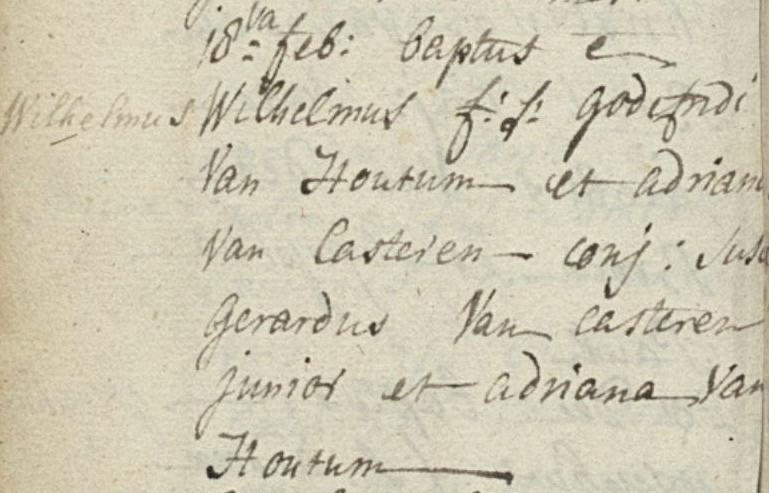 18va feb: baptus e
Wilhelmus Wilhelmus f: l: godefridi
Van Houtum et adriana
Van Casteren conj: sus
gerardus Van casteren
junior et adriana Van
Houtum